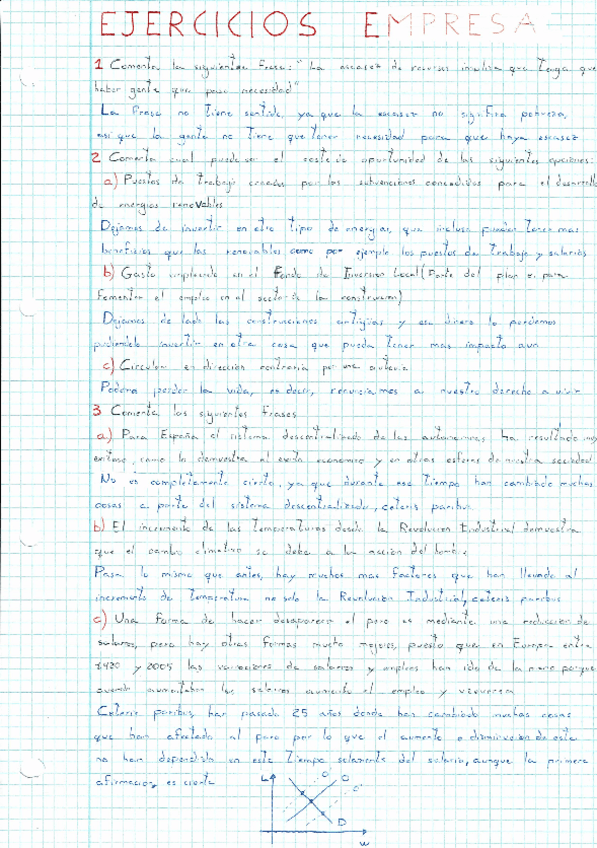 EJERCICIOS EMPRESA
1 Comenta la siguiente frase: "La escasez de recursos implica que tenga que
haber gente que pase necesidad"
La frase no tiene sentido, ya que la escasez no significa pobreza,
así que la gente no tiene que tener necesidad para que haya escasez
2 Comenta cual puede ser el coste de oportunidad de las siguientes opciones:
a) Puestos de trabajo creados por las subvenciones concedidas para el desarrollo
de energias renovables
Dejamos de invertir en otro tipo de energias, que incluso puedan tener mas
beneficios que las renovables como por ejemplo los puestos de trabajo y salarios
b) Gasto empleado en el Fondo de Inversion Local (Parte del plan para
fomentar el empleo en el sector de la construcion)
Dejamos de lado las construciones antigüas y ese dinero lo perdemos
pudiendolo invertir en otra cosa que pueda tener mas impacto aun
c) Circular en dirección contraria por una autovia
Podera perder la vida, es decir, renunciamos a nuestro derecho a vivir
3 Comenta las siguientes frases
a) Para España el sistema descentralizado de las autonomias ha resultado muy
exitoso, como lo demuestra el exito economico y en otras esferas de nuestra sociedad
No es completamente cierto, ya que durante ese tiempo han cambiado muchas
cosas a parte del sistema descentralizado, ceteris paribus.
b) El incremento de las temperaturas desde la Revolucion Industrial demuestra
que el cambio climatico se debe a la accion del hombre
Pasa lo mismo que antes, hay muchos mas factores que han llevado al
incremento de temperatura no solo la Revolucion Industrial, ceteris paribus
c) Una forma de hacer desaparecer el paro es mediante una reduccion de
salarios, pero hay otras formas mucho mejores, puesto que en Europa entre
1980 y 2005 las variaciones de salarios y empleos han ido de la mano porque
cuando aumentaban los salarios aumento el empleo y viceversa
Ceteris paribus, han pasado 25 años donde han cambiado muchas cosas
que han afectado al paro por lo que el aumento o disminucion de este
no han dependido en este tiempo solamente del salario, aunque la primera
afirmacion es cierta
L
O' O O'
D
w